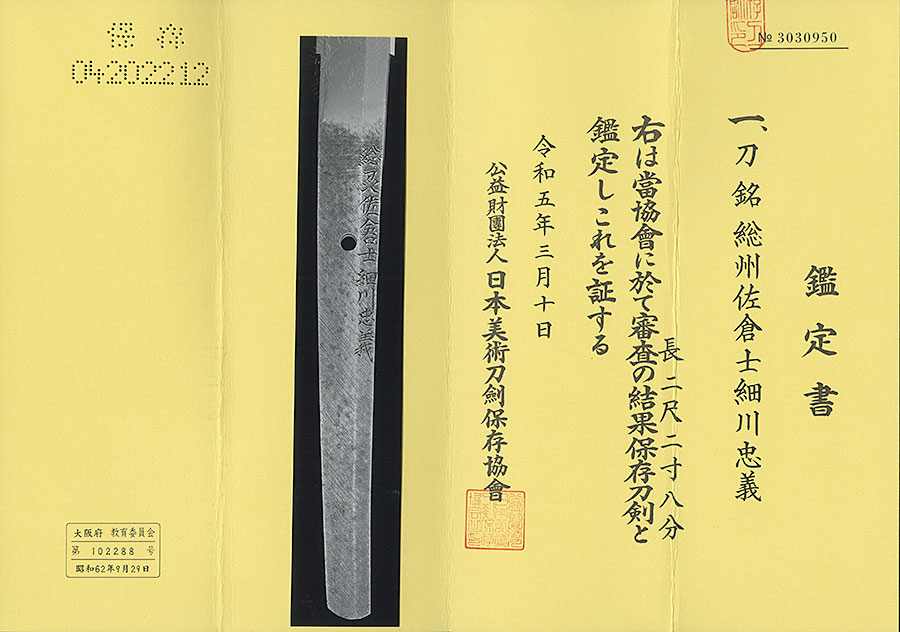 № 3030950
鑑定書
一、刀 銘 総州佐倉士細川忠義
長 二尺二寸八分
右は當協會に於て審査の結果保存刀剣と
鑑定しこれを証する
令和五年三月十日
公益財團法人 日本美術刀劍保存協會
総州佐倉士細川忠義
保存
04202212
大阪府 教育委員会
第 102288 号
昭和62年9月29日